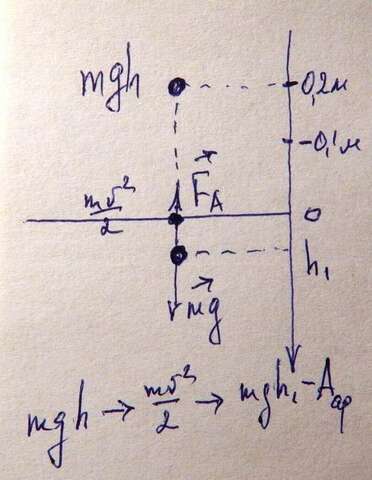 mgh
0,2м
0,1м
mv²/2
F⃗A
0
h₁
mg⃗
mgh → mv²/2 → mgh₁ - Aар